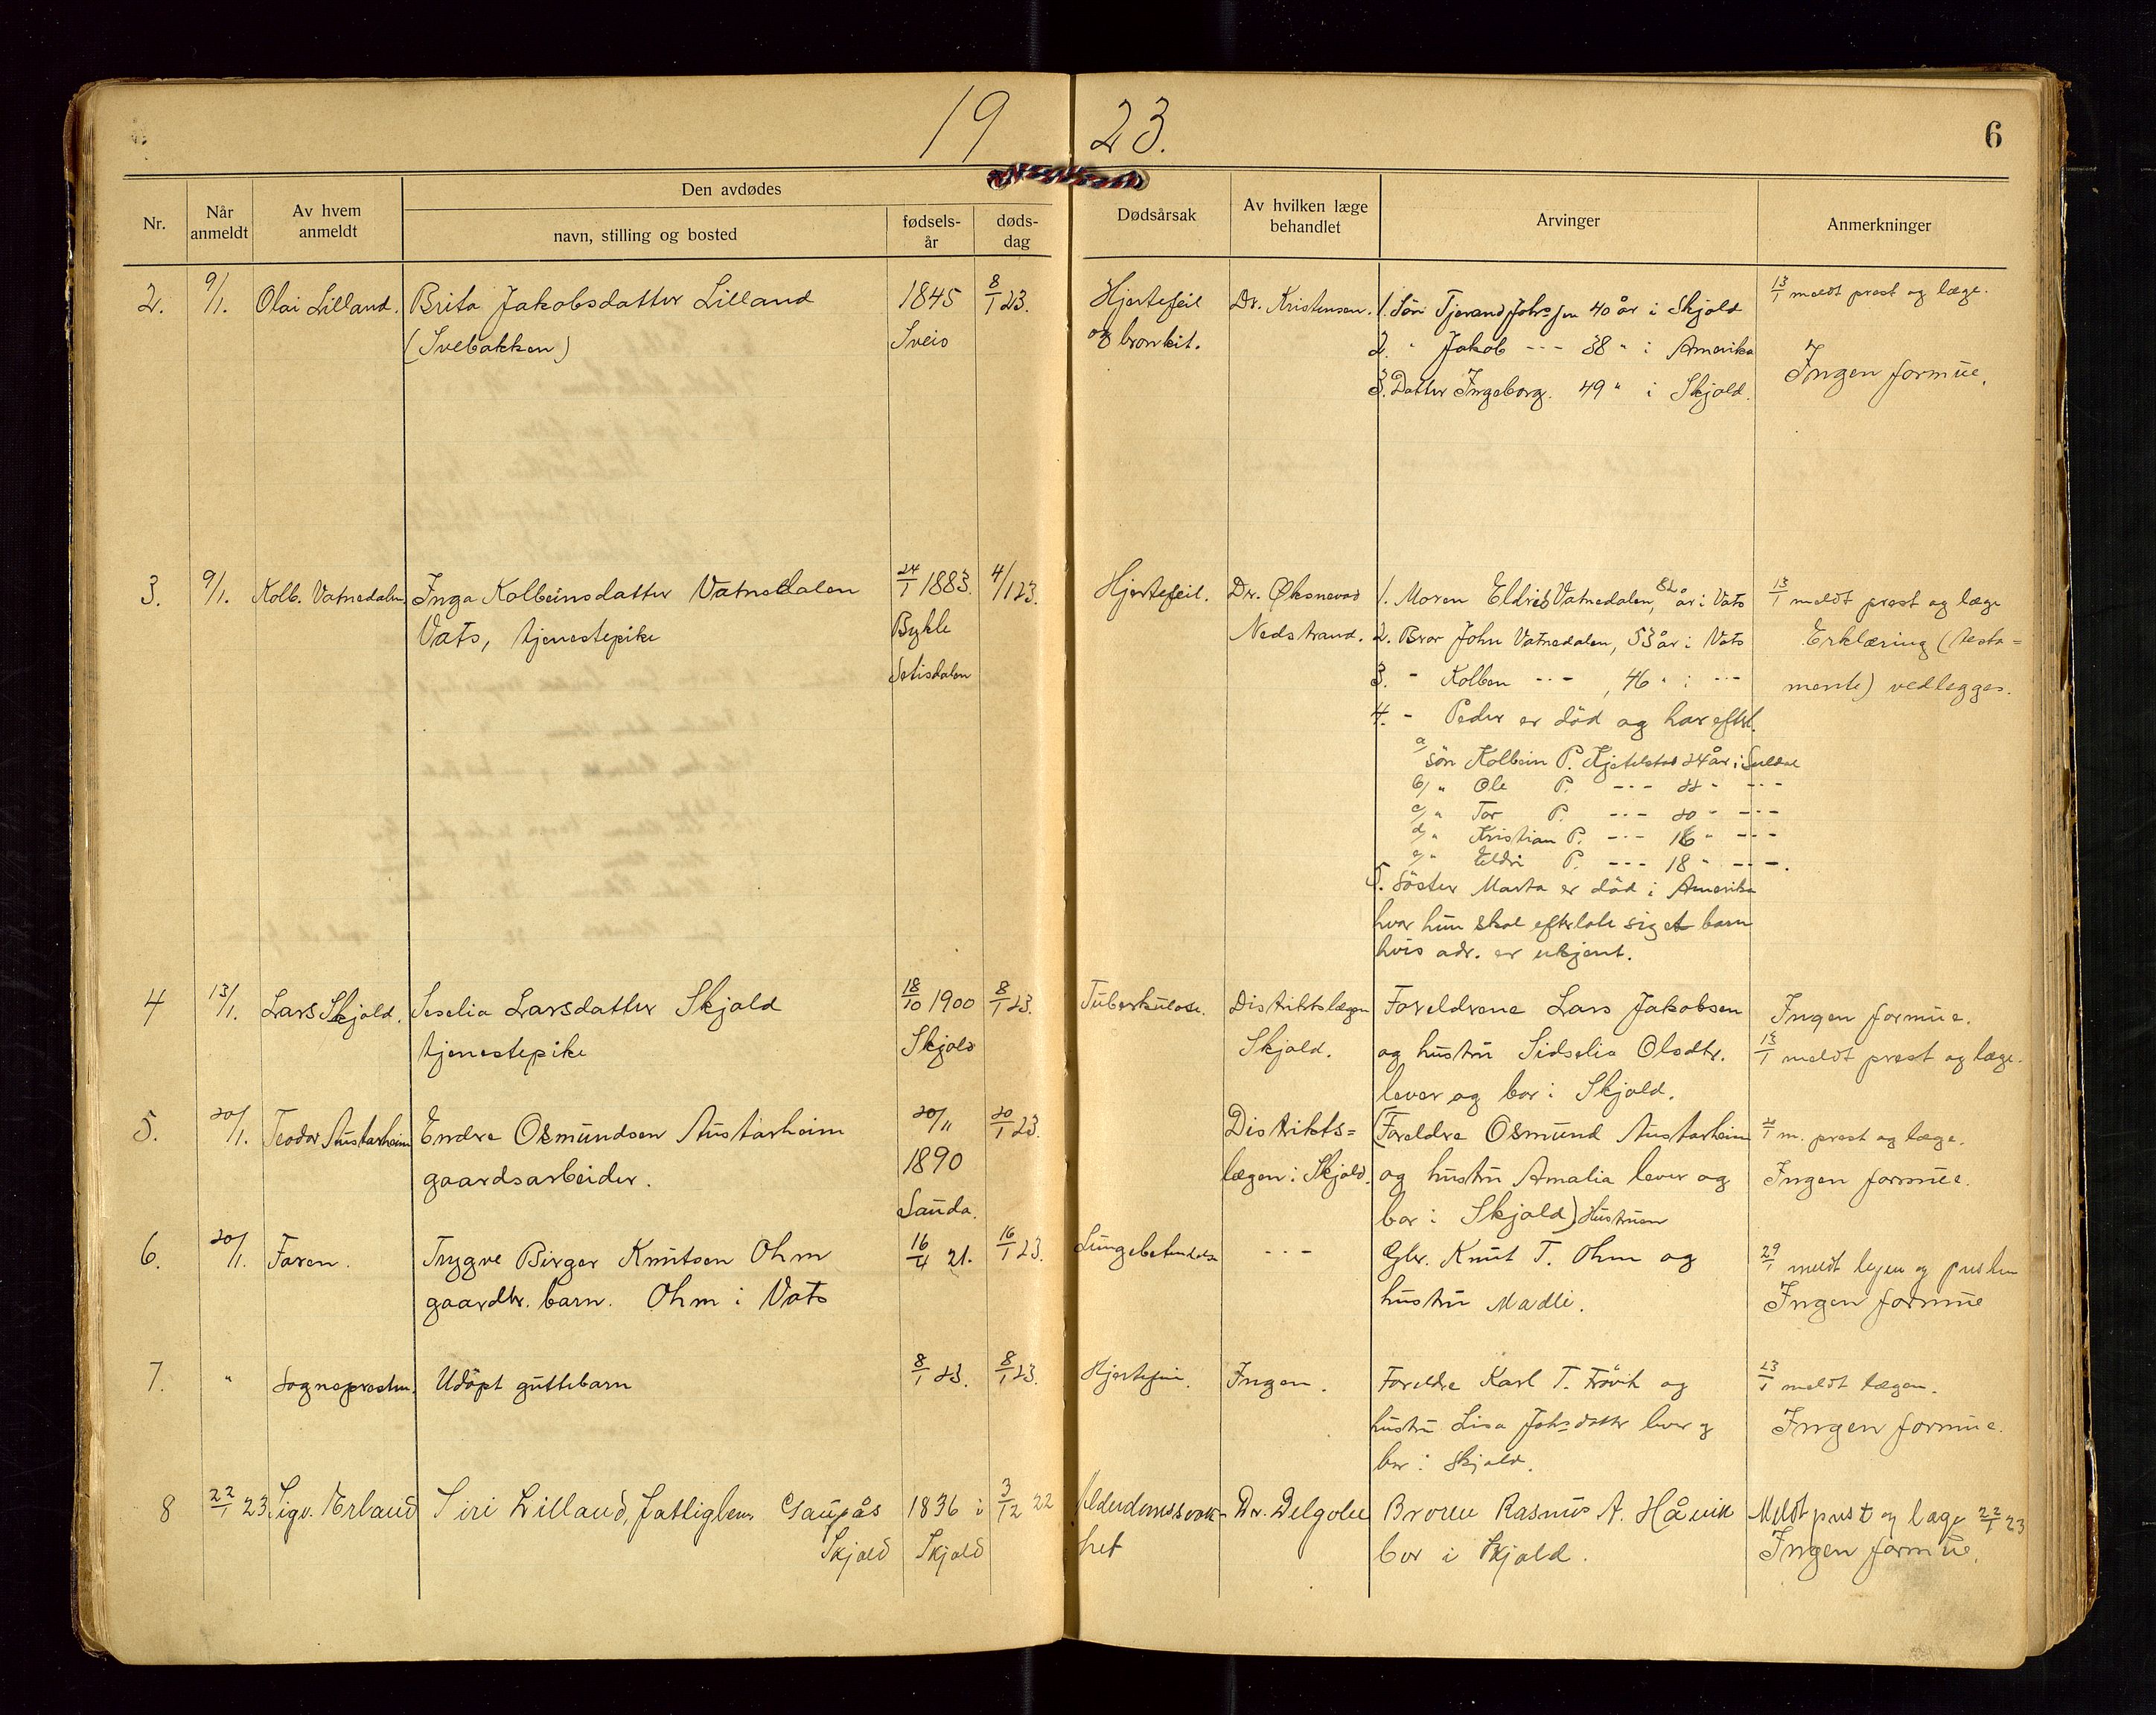 19 23.
6
Nr.
Når anmeldt
Av hvem anmeldt
Den avdødes
navn, stilling og bosted
fødsels-år
døds-dag
Dødsårsak
Av hvilken læge behandlet
Arvinger
Anmerkninger
2. 9/1. Olai Lilland. Brita Jakobsdatter Lilland 1845 8/1 23. Hjertefeil Dr. Kristensen. 1. Sön Tjerand Johs sen 40 år i Skjold 13/1 meldt prest og læge.
(Svebakken) Sveio og bronkit. 2. " Jakob --- 38 " i Amerika
3. Datter Ingeborg. 49 " i Skjold. Ingen formue.
3. 9/1. Kolb. Vatnedalen Inga Kolbeinsdatter Vatnedalen 24/1 1883. 4/1 23. Hjertefeil. Dr. Øksnevad 1. Moren Eldrid Vatnedalen, 82 år i Vats 13/1 meldt prest og læge
Vats, tjenestepike Bykle Nedstrand. 2. Bror John Vatnedalen, 53 år i Vats Erklæring (testa=
Setisdalen 3. - Kolben --- , 46 " i --- mente) vedlegges.
4. - Peder er död og har efterl.
a/ sön Kolbein P. Kjetelstad 24 år i Suldal
b/ " Ole P. --- 22 " ---
c/ " Tor P. --- 20 " ---
d/ " Kristian P. --- 16 " ---
e/ " Eldri P. --- 18 " ---.
5. Söster Marta er död i Amerika
hvor hun skal efterlate sig et barn
hvis adr. er ukjent.
4 13/1. Lars Skjold. Seselia Larsdatter Skjold 18/10 1900 8/1 23. Tuberkulose. Distriktslægen Foreldrene Lars Jakobsen Ingen formue.
tjenestepike Skjold Skjold. og hustru Sidselia Olsdtr. 13/1 meldt prest og læge.
lever og bor i Skjold.
5. 20/1. Teodor Austarheim Endre Osmundsen Austarheim 20/11 20/1 23. Distrikts= (Foreldre Osmund Austarheim m. prest og læge.
gaardsarbeider. 1890 lægen i Skjold. og hustru Amalia lever og Ingen formue.
Sauda. bor i Skjold) Hustruen
6. 20/1. Faren. Trygve Birger Knutsen Ohm 16/4 21. 16/1 23. Lungebetendelse --- Gbr. Knut T. Ohm og 29/1 meldt legen og presten
gaardbr. barn. Ohm i Vats hustru Madli. Ingen formue
7. " Sognepresten. Udöpt guttebarn 8/1 23. 8/1 23. Hjertefeil. Ingen. Foreldre Karl T. Frövik og 23/1 meldt lægen.
hustru Lisa Johsdatter lever og Ingen formue.
bor i Skjold.
8 22/1 23 Sigv. Erland Siri Lilland, fattiglem. Gaupås 1836 i 3/12 22 Alderdomssvak- Dr. Delgobe Broren Rasmus A. Håvik Meldt prest og læge 22/1 23
Skjold Skjold het bor i Skjold. Ingen formue.